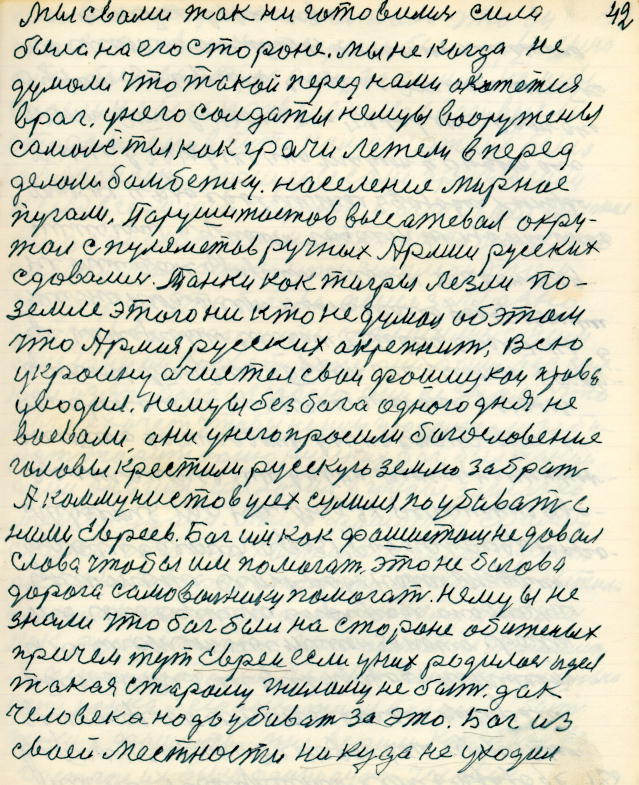 42
Мы свами так ни готовимся сила
была на его стороне. мы не когда не
думоли что такой перед нами окажется
враг. у него солдаты немцы вооружены
самолёты как грачи летели вперед
делоли бомбёжку. население мирное
пугали. Парушитостов высатевал окру-
жал с пуляметов ручных Армии русских
сдовалися. Танки как тигры лезли по-
земле этого ни кто не думал об этом
что Армия русских окрепнит. Всю
украину очистел свой фошицкой
уводил. немцы без бога одного дня не
воевали они у него просили богословение
головы крестили русскую землю забрат
А коммунистов усех сулился поубиват с
ними Евреев. Бог им как фошистом не довал
слова чтобы им помогат. это не богова
дорога самовольнику помогат. немцы не
знали что бог был на стороне обиженых
причем тут Евреи если у них родилася идея
такая старому гнилому не быт. дак
человека надо убиват за это. Бог из
своей местности никуда не уходил